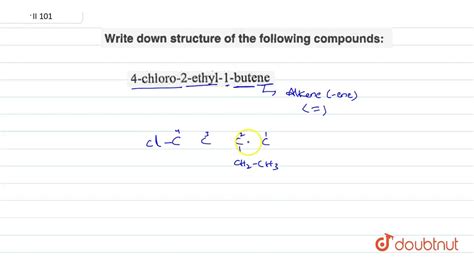 II 101
Write down structure of the following compounds:
4-chloro-2-ethyl-1-butene
Alkene (-ene)
(=)
4 3 2 1
Cl-C C C C
CH2-CH3
doubtnut